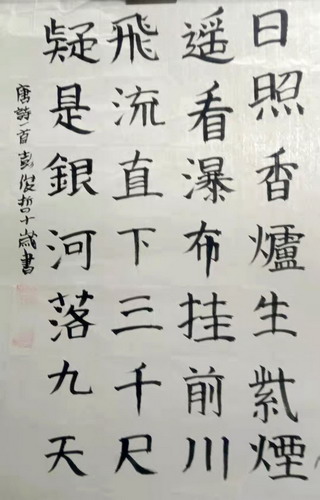 日照香爐生紫煙
遥看瀑布挂前川
飛流直下三千尺
疑是銀河落九天
唐詩一首彭俊哲十歲書